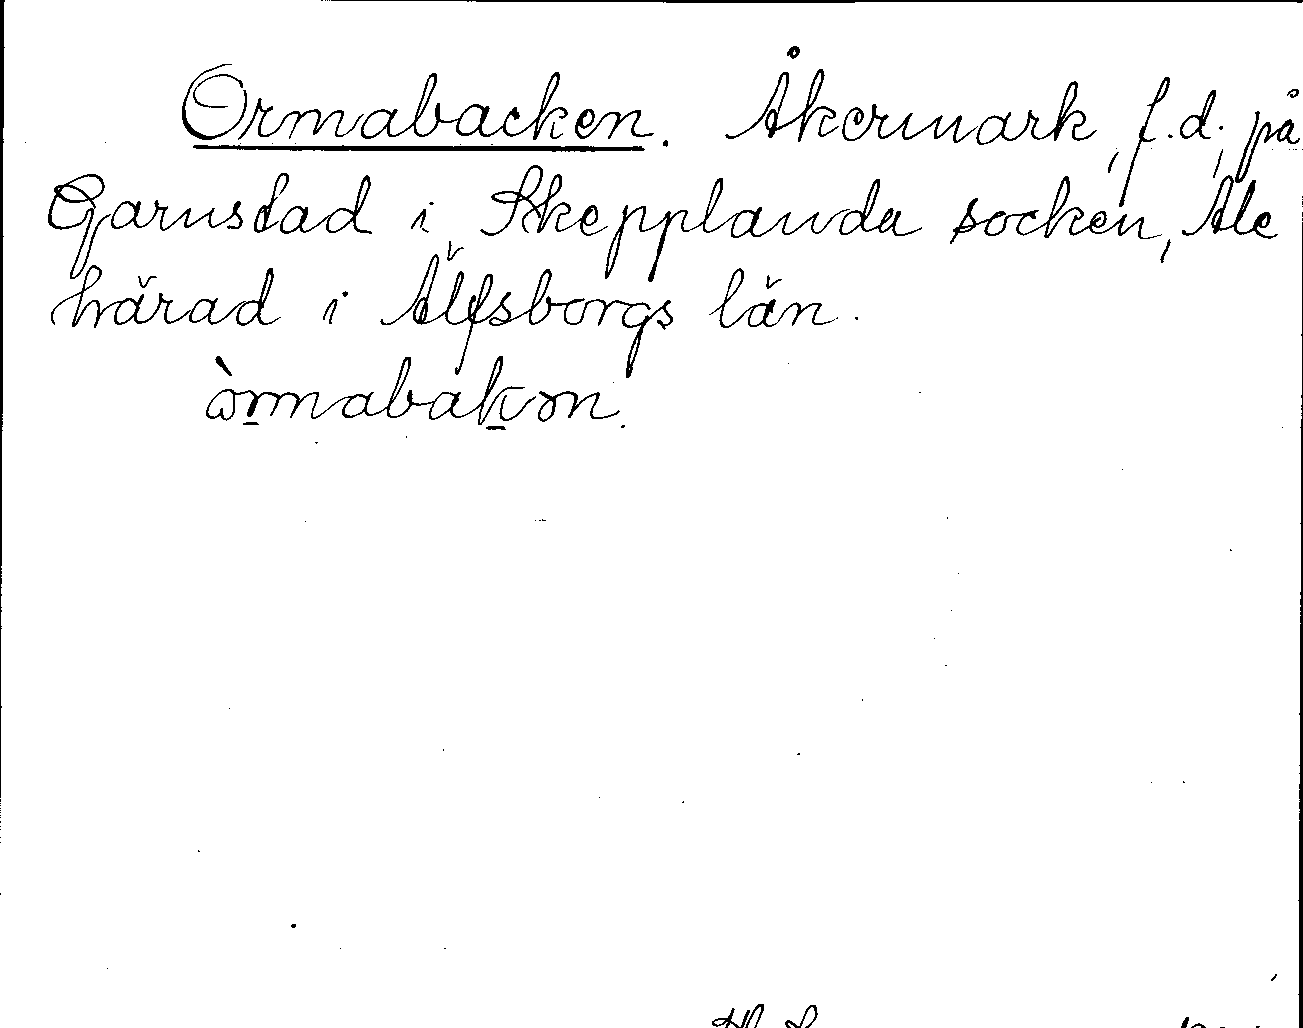 Ormabacken. Åkermark, f.d., på
Garnstad i Skepplanda socken, Ale
härad i Älfsborgs län.
òrmabakən.